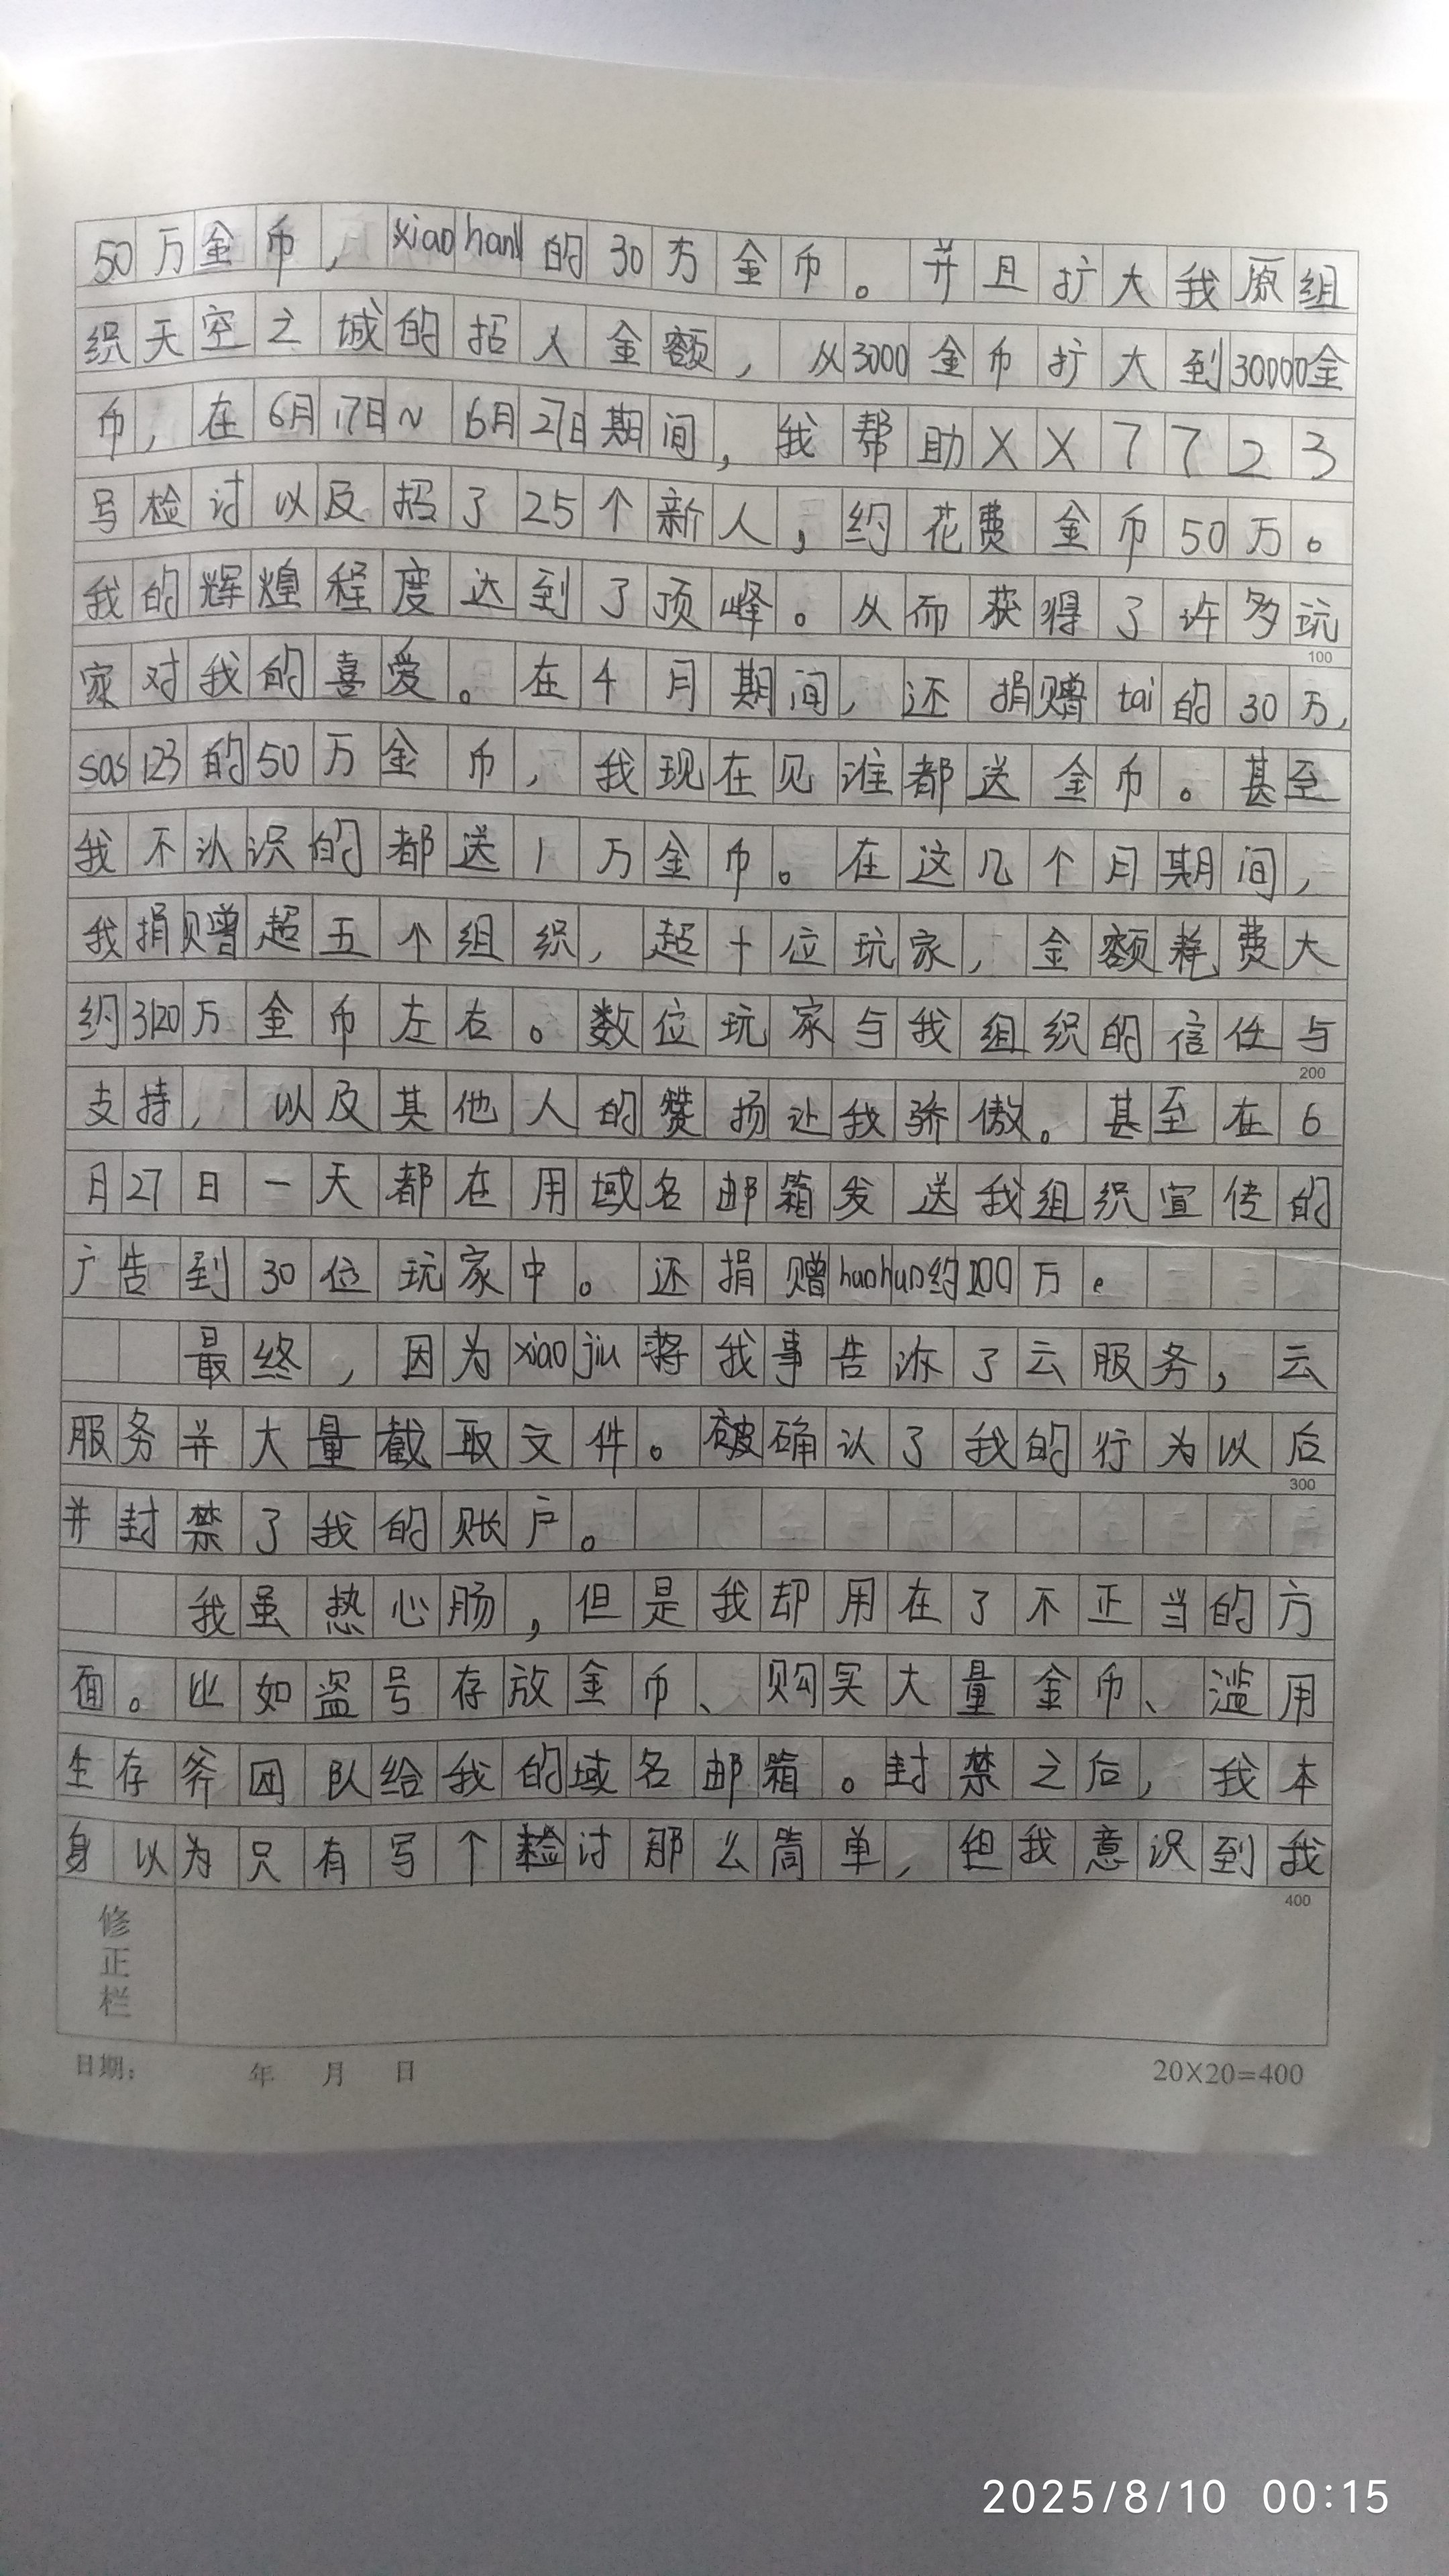 50万金币，xiaohan的30万金币。并且扩大我原组
织天空之城的招人金额，从3000金币扩大到30000金
币，在6月17日~6月27日期间，我帮助XX7723
写检讨以及招了25个新人，约花费金币50万。
我的辉煌程度达到了顶峰。从而获得了许多玩
100
家对我的喜爱。在4月期间，还捐赠tai的30万，
sas123的50万金币，我现在见谁都送金币。甚至
我不认识的都送1万金币。在这几个月期间，
我捐赠超五个组织，超十位玩家，金额耗费大
约3120万金币左右。数位玩家与我组织的信任与
200
支持，以及其他人的赞扬让我骄傲。甚至在6
月27日一天都在用域名邮箱发送我组织宣传的
广告到30位玩家中。还捐赠haohao约200万。
最终，因为xiaojiu将我事告诉了云服务，云
服务并大量截取文件。确认了我的行为以后
300
并封禁了我的账户。
我虽热心肠，但是我却用在了不正当的方
面。比如盗号存放金币、购买大量金币、滥用
生存斧团队给我的域名邮箱。封禁之后，我本
身以为只有写个检讨那么简单，但我意识到我
400
修正栏
日期： 年 月 日 20X20=400
2025/8/10 00:15